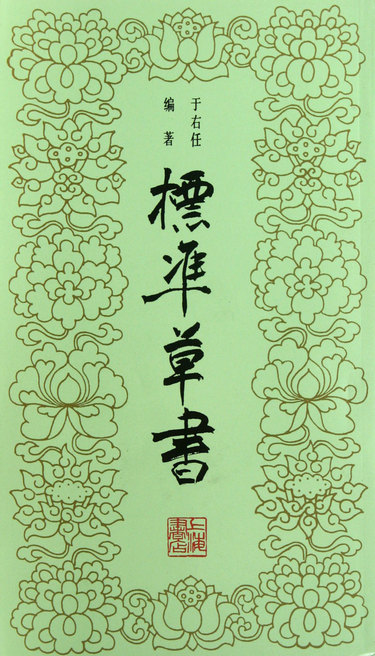 于右任
编著
標準草書
上海書店